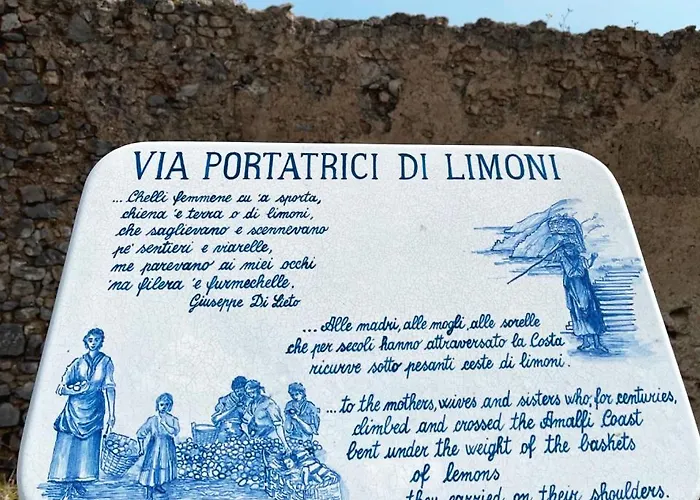 VIA PORTATRICI DI LIMONI
... Chelli femmene cu 'a sporta,
chiena 'e terra o di limoni,
che saglievano e scennevano
pe' sentieri e viarelle,
me parevano ai miei occhi
'na filera 'e furmechelle.
Giuseppe Di Lieto
... Alle madri, alle mogli, alle sorelle
che per secoli hanno attraversato la Costa
ricurve sotto pesanti ceste di limoni.
... to the mothers, wives and sisters who, for centuries,
climbed and crossed the Amalfi Coast
bent under the weight of the baskets
of lemons
they carried on their shoulders.